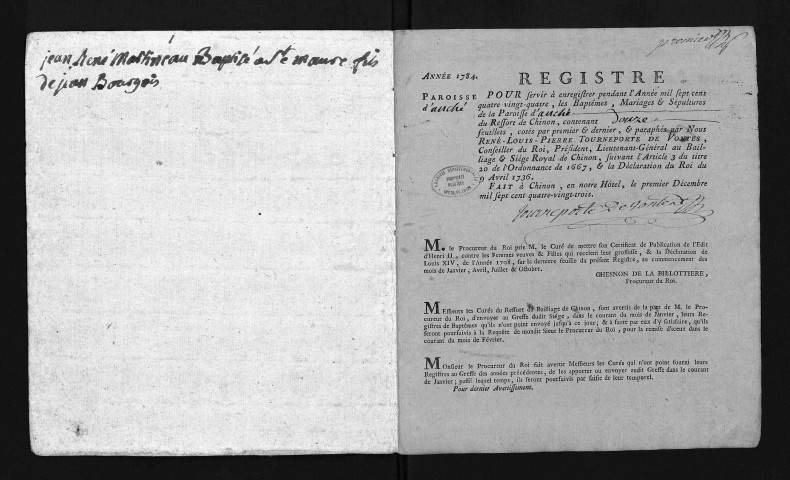 jean René Martineau Baptisé a Ste maure fils
de jean Bourgois
premier
ANNÉE 1784.
REGISTRE
PAROISSE
d'anché
POUR servir à enregistrer pendant l'Année mil sept cent
quatre vingt-quatre, les Baptêmes, Mariages & Sépultures
de la Paroisse d'anché
du Ressort de Chinon, contenant douze
feuillets, cotés par premier & dernier, & paraphés par Nous
RENÉ-LOUIS-PIERRE TOURNEPORTE DE VONTES,
Conseiller du Roi, Président, Lieutenant-Général au Bail-
liage & Siége Royal de Chinon, suivant l'Article 3 du titre
20 de l'Ordonnance de 1667, & la Déclaration du Roi du
9 Avril 1736.
FAIT à Chinon, en notre Hôtel, le premier Décembre
mil sept cent quatre-vingt-trois.
Tourneporte De Vontes
M. le Procureur du Roi prie M. le Curé de mettre son Certificat de Publication de l'Edit
d'Henri II, contre les Femmes veuves & Filles qui recelent leur grossesse, & la Déclaration de
Louis XIV, de l'Année 1708, sur la derniere feuille du présent Registre, au commencement des
mois de Janvier, Avril, Juillet & Octobre.
CHESNON DE LA BILLOTTIERE,
Procureur du Roi.
MESSIEURS les Curés du Ressort du Bailliage de Chinon, sont avertis de la part de M. le Pro-
cureur du Roi, d'envoyer au Greffe dudit Siége, dans le courant du mois de Janvier, leurs Re-
gistres de Baptêmes qu'ils n'ont point envoyé jusqu'à ce jour; & à faute par eux d'y satisfaire, qu'ils
seront poursuivis à la Requête de mondit Sieur le Procureur du Roi, pour la remise d'iceux dans le
courant du mois de Février.
MONSIEUR le Procureur du Roi fait avertir Messieurs les Curés qui n'ont point fourni leurs
Registres au Greffe des années précédentes, de les apporter ou envoyer audit Greffe dans le courant
de Janvier; passé lequel temps, ils seront poursuivis par saisie de leur temporel.
Pour dernier Avertissement.